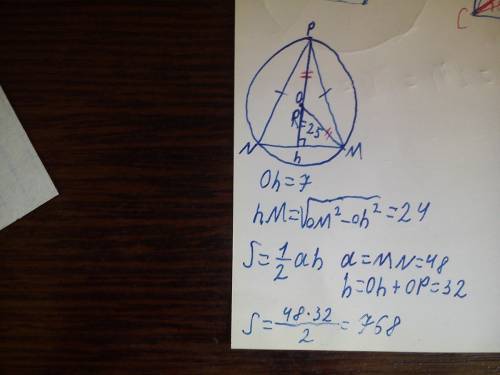 C
P
O
R=25
N
M
h
Oh=7
hM=√OM²-Oh²=24
S=1/2ah a=MN=48
h=Oh+OP=32
S=48·32/2=768